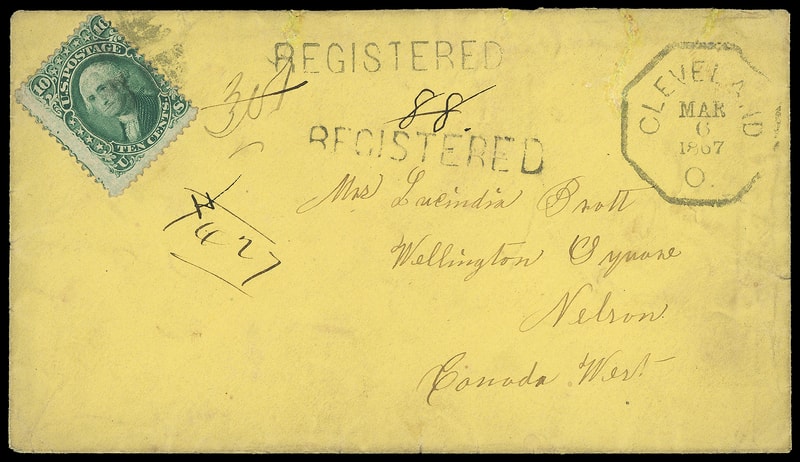 10
U.S. POSTAGE
10
TEN CENTS.
U
S
REGISTERED
88.
REGISTERED
CLEVELAND
MAR
6
1867
O.
Mrs Lucindia Prott
Wellington Square
Nelson
Canada West